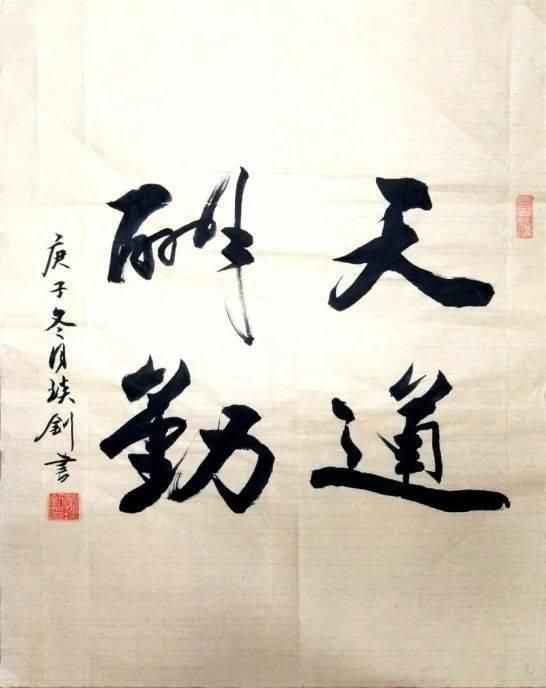 天道
酬勤
庚子冬月琰剑书